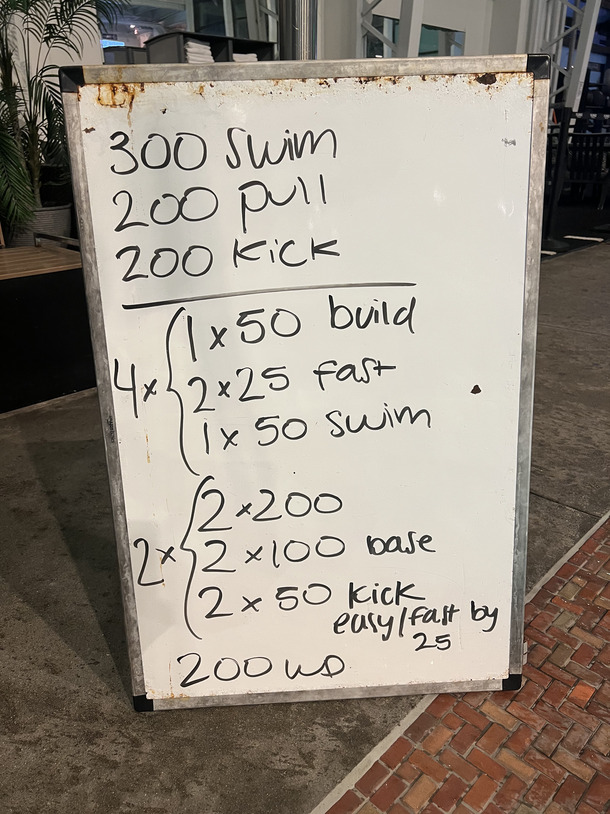 300 swim
200 pull
200 kick
4x { 1x50 build
2x25 fast
1x 50 swim
2x { 2x200
2x100 base
2x50 kick
easy/fast by
25
200 WD